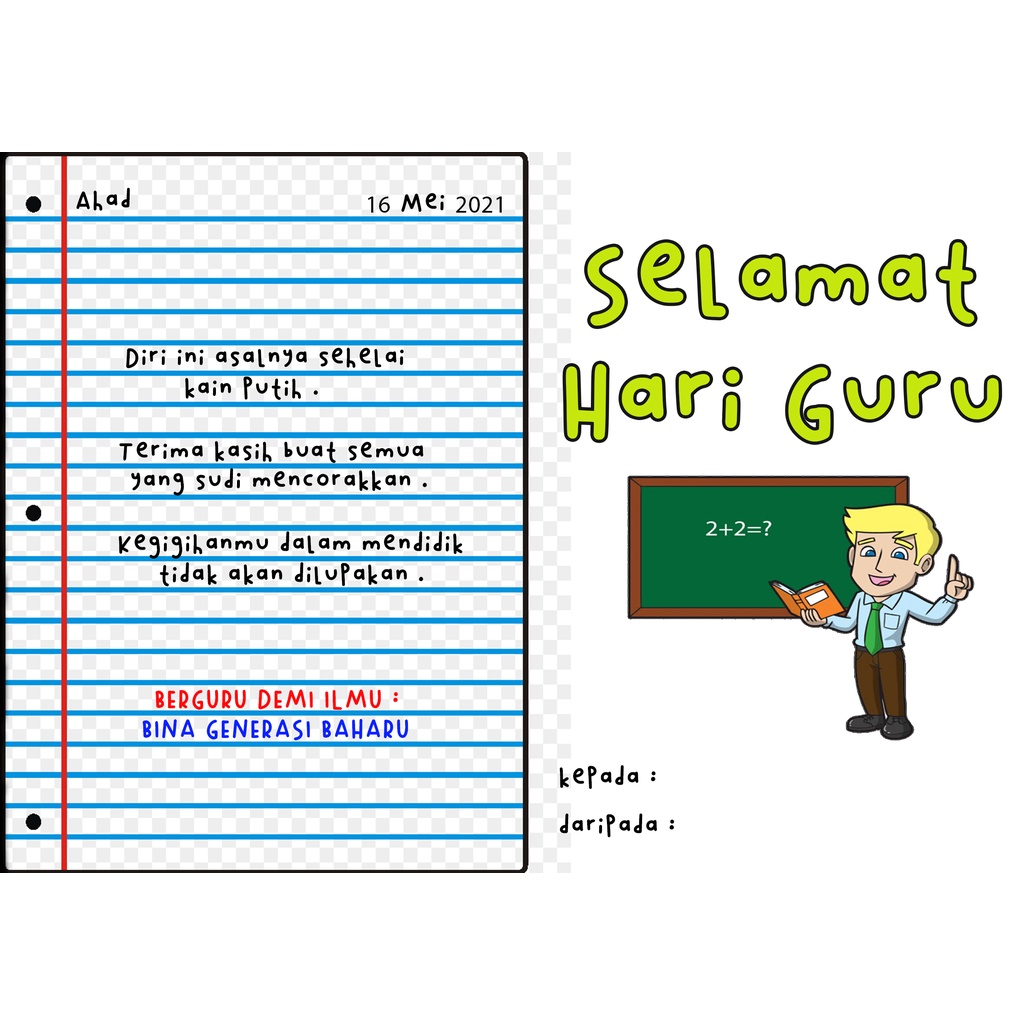 Ahad
16 Mei 2021
Diri ini asalnya sehelai
kain putih .
Terima kasih buat semua
yang sudi mencorakkan .
Kegigihanmu dalam mendidik
tidak akan dilupakan .
BERGURU DEMI ILMU :
BINA GENERASI BAHARU
Selamat
Hari Guru
2+2=?
kepada :
daripada :